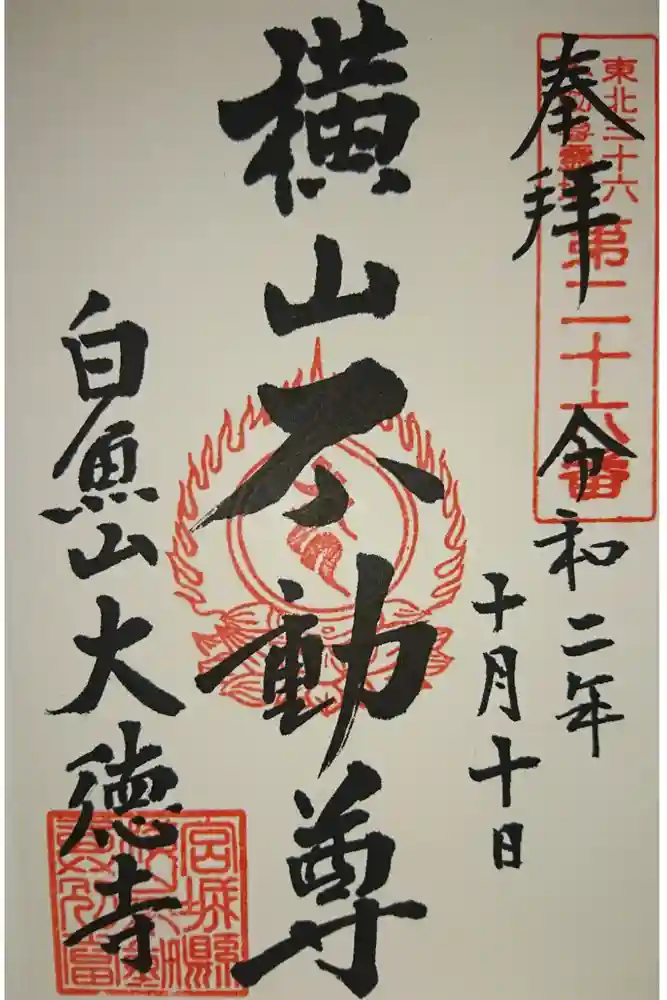 東北三十六
不動尊霊場
第二十六番
奉拝
令和二年
十月十日
横山不動尊
白魚山大徳寺
宮城縣